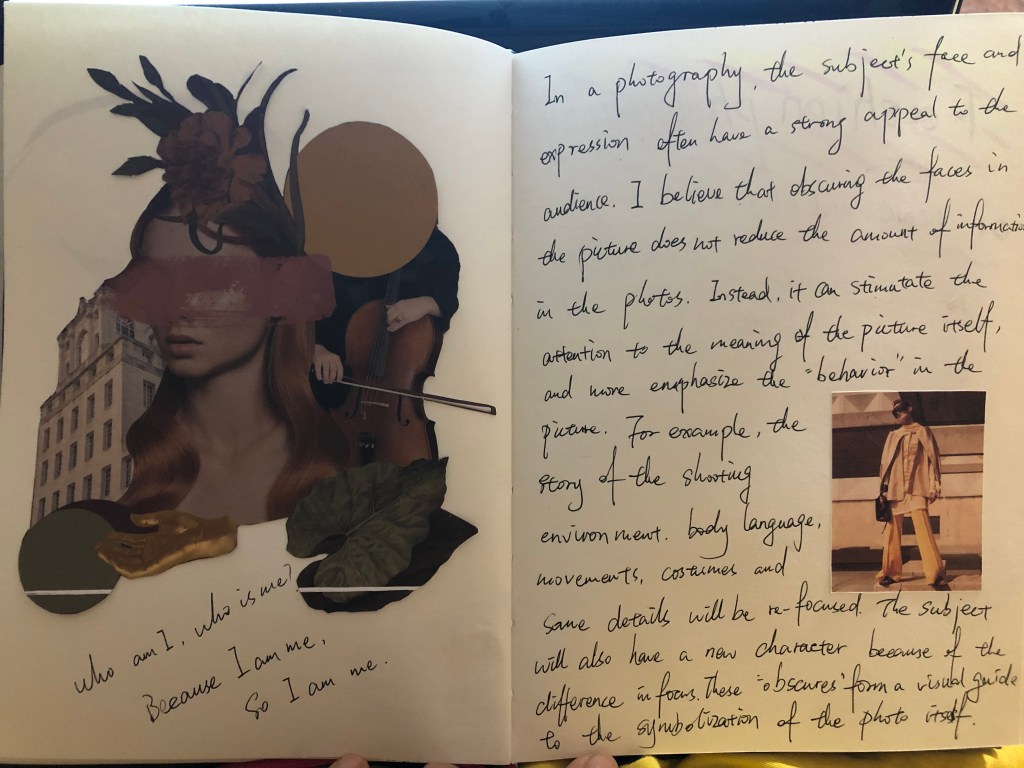 who am I, who is me?
Because I am me,
So I am me.
In a photography, the subject's face and
expression often have a strong appeal to the
audience. I believe that obscuring the faces in
the picture does not reduce the amount of information
in the photos. Instead, it can stimutate the
attention to the meaning of the picture itself,
and more emphasize the "behavior" in the
picture. For example, the
story of the shooting
environment. body language,
movements, costumes and
same details will be re-focused. The subject
will also have a new character because of the
difference in focus. These "obscures" form a visual guide
to the symbolization of the photo itself.